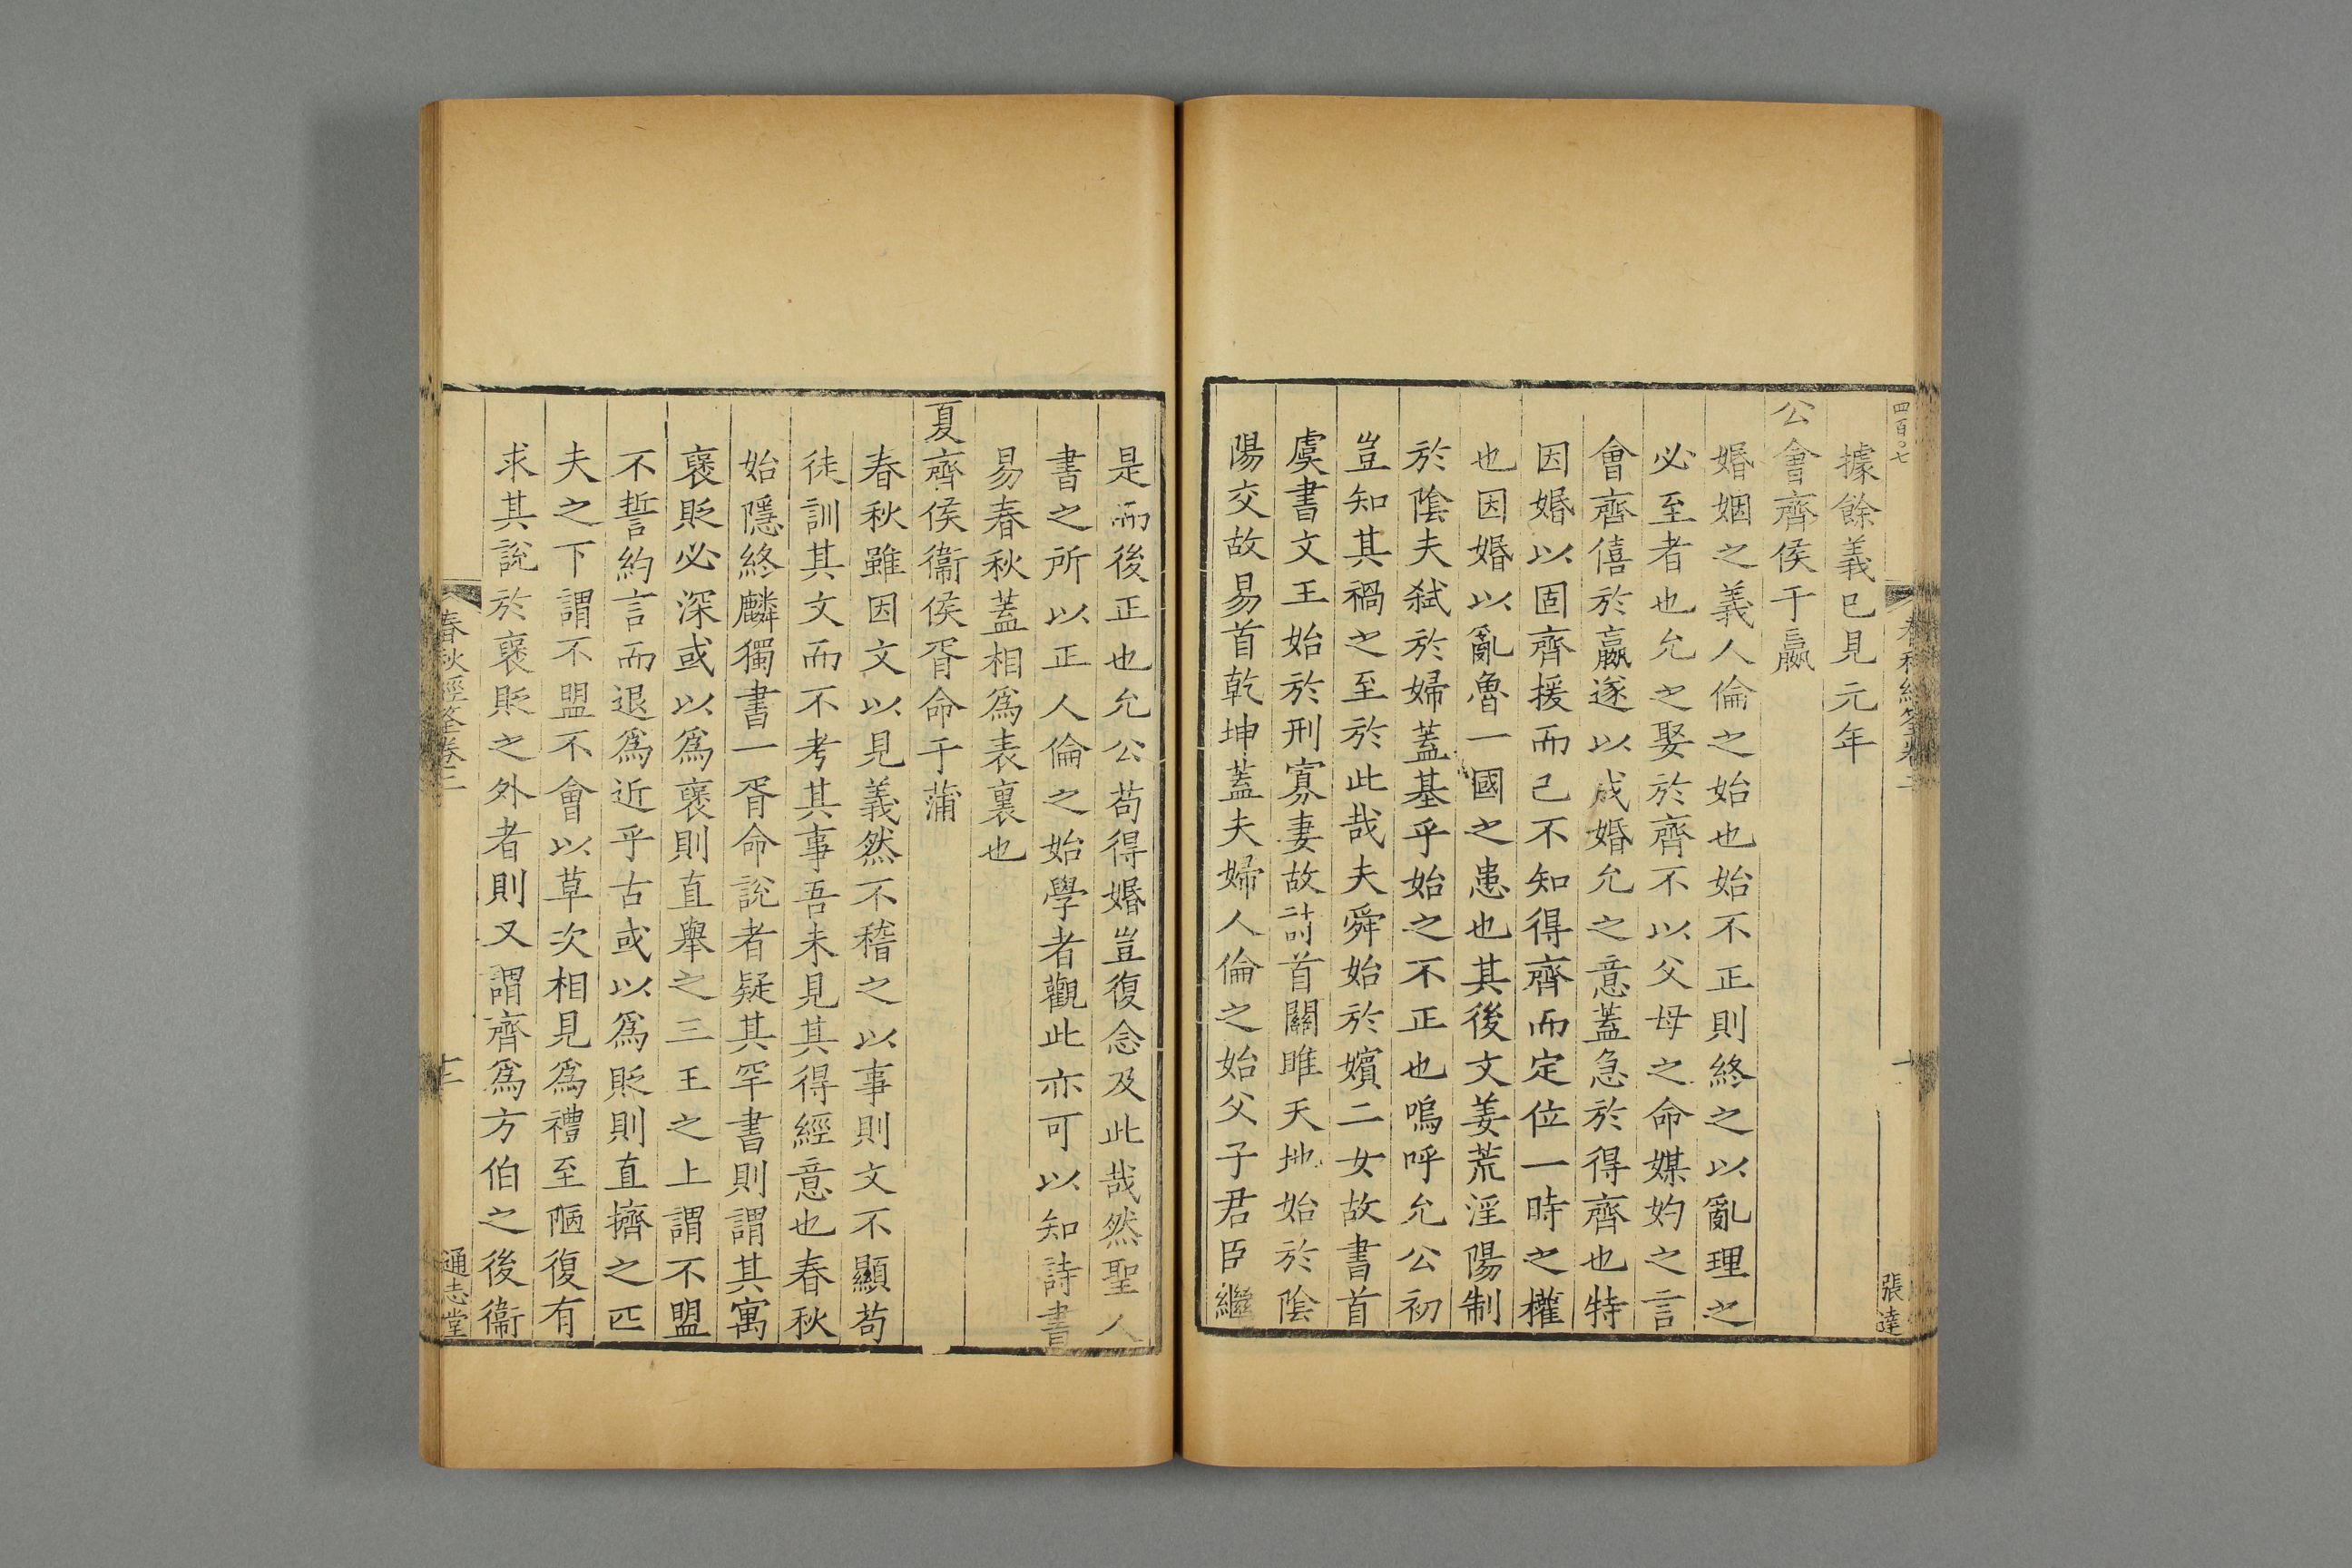 四百〇七
春秋經筌卷二
張達
據餘義已見元年
公會齊侯于嬴
婚姻之義人倫之始也始不正則終之以亂理之
必至者也允之娶於齊不以父母之命媒妁之言
會齊僖於嬴遂以成婚允之意蓋急於得齊也特
因婚以固齊援而已不知得齊而定位一時之權
也因婚以亂魯一國之患也其後文姜荒淫陽制
於陰夫弑於婦蓋基乎始之不正也嗚呼允公初
豈知其禍之至於此哉夫舜始於嬪二女故書首
虞書文王始於刑寡妻故二十首關雎天地始於陰
陽交故易首乾坤蓋夫婦人倫之始父子君臣繼
是而後正也允公苟得婚豈復念及此哉然聖人
書之所以正人倫之始學者觀此亦可以知詩書
易春秋蓋相爲表裏也
夏齊侯衞侯胥命于蒲
春秋雖因文以見義然不稽之以事則文不顯苟
徒訓其文而不考其事吾未見其得經意也春秋
始隱終麟獨書一胥命說者疑其罕書則謂其寓
襃貶必深或以爲襃則直舉之三王之上謂不盟
不誓約言而退爲近乎古或以爲貶則直擠之匹
夫之下謂不盟不會以草次相見爲禮至陋復有
求其說於襃貶之外者則又謂齊爲方伯之後衞
春秋經筌卷二
十二
通志堂